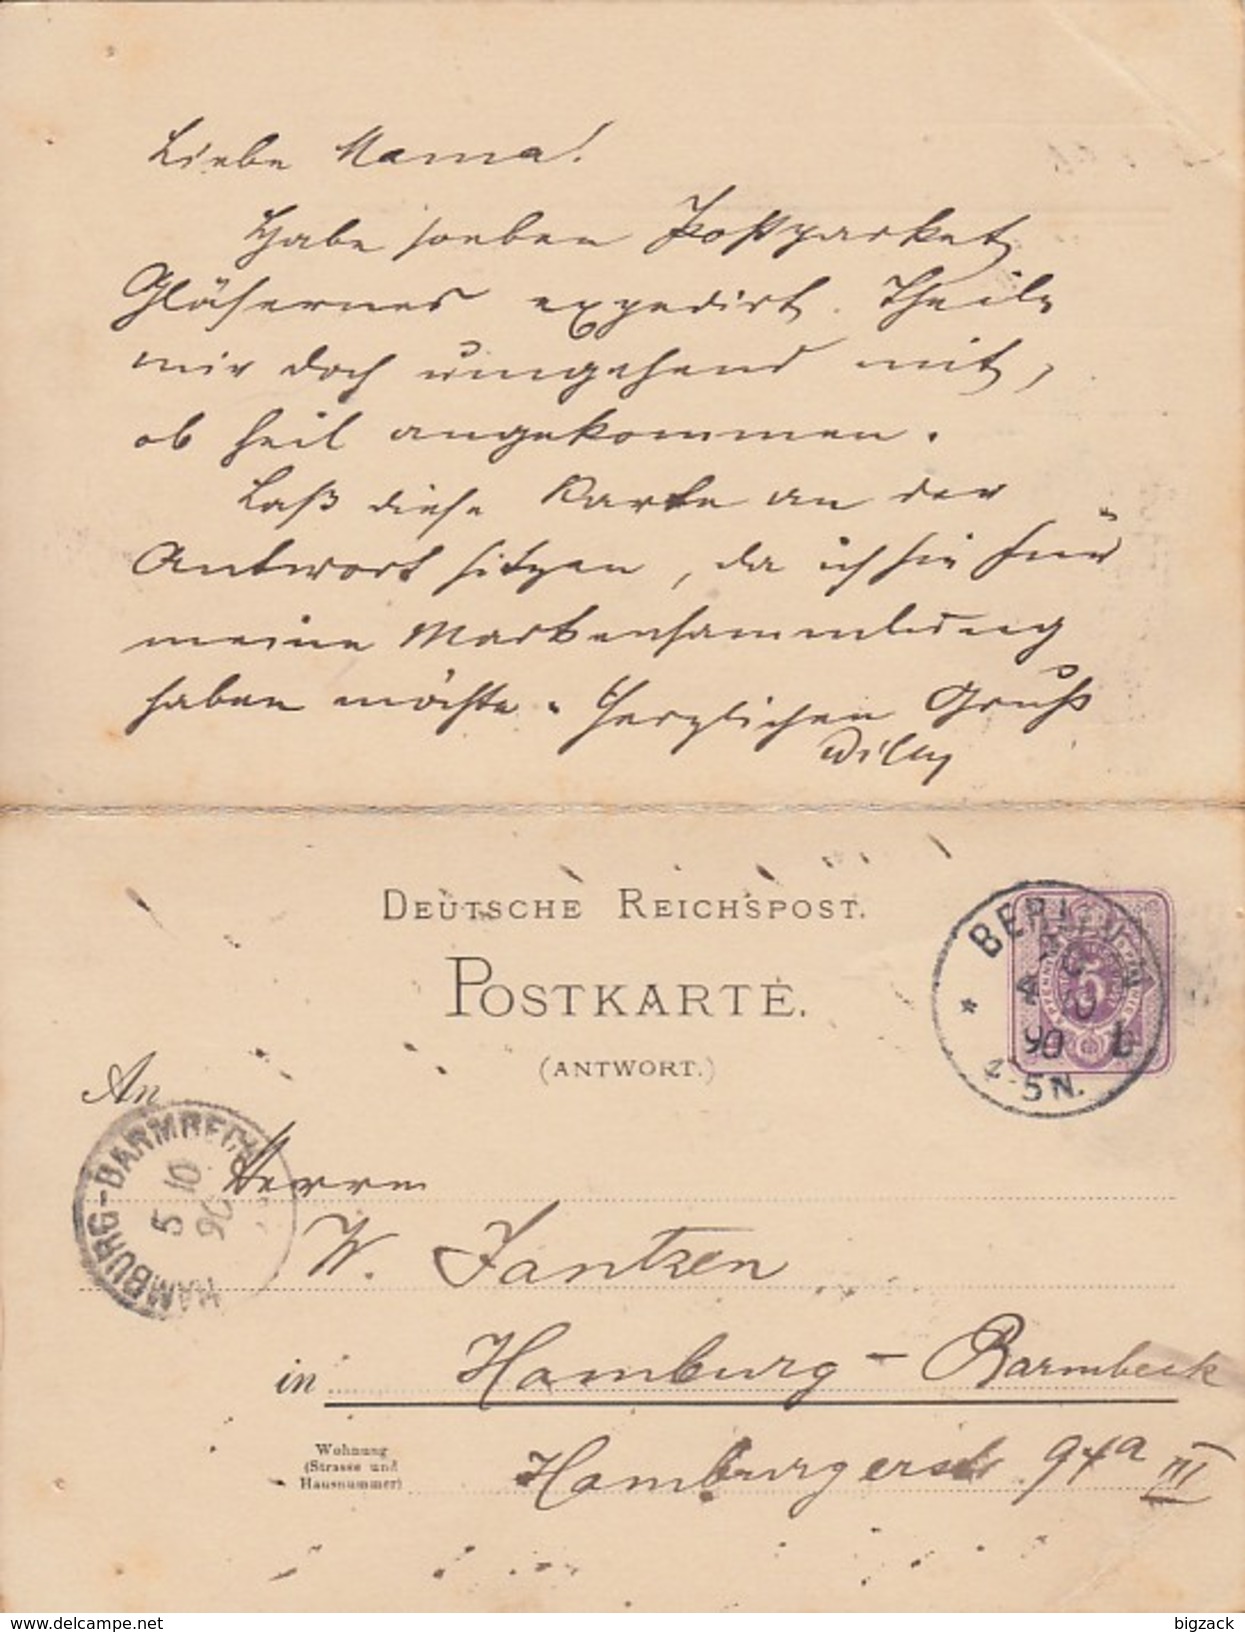 Liebe Mama!
Habe soeben Postpacket
Gläsernes expedirt. Theile
mir doch umgehend mit,
ob heil angekommen.
Laß diese Karte an der
Antwort sitzen, da ich sie für
meine Markensammlung
haben möchte. Herzlichen Gruß
Willy
DEUTSCHE REICHSPOST.
POSTKARTE.
(ANTWORT.)
BERLIN
90
4-5N.
5
An
HAMBURG-BARMBECK
5 10
90
Herrn
W. Jantzen
in Hamburg-Barmbeck
Wohnung
(Strasse und
Hausnummer)
Hamburgerstr. 94a III
delcampe.net
bigzack